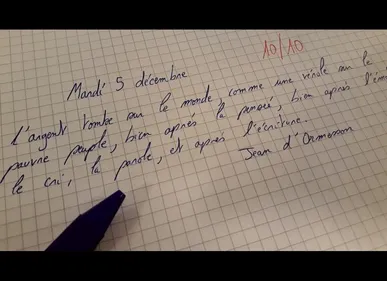 10/10
Mardi 5 décembre
L'argent tombe sur le monde, comme une vérole sur le
pauvre peuple, bien après la pensée, bien après l'ém
le cri, la parole, et après l'écriture.
Jean d'Ormesson